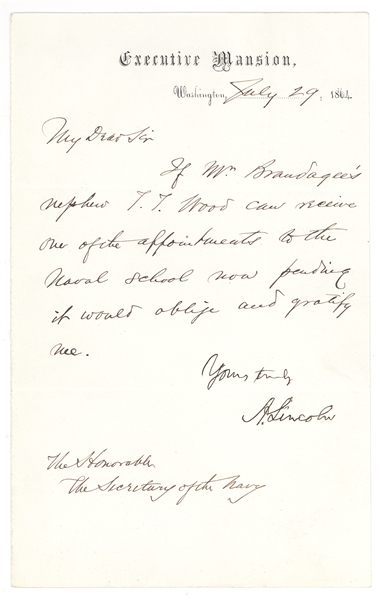 Executive Mansion,
Washington, July 29, 1864.
My Dear Sir
If Mr Brandagee's
nephew T. T. Wood can receive
one of the appointments to the
Naval school now pending
it would oblige and gratify
me.
Yours truly
A. Lincoln
The Honorable
The Secretary of the Navy